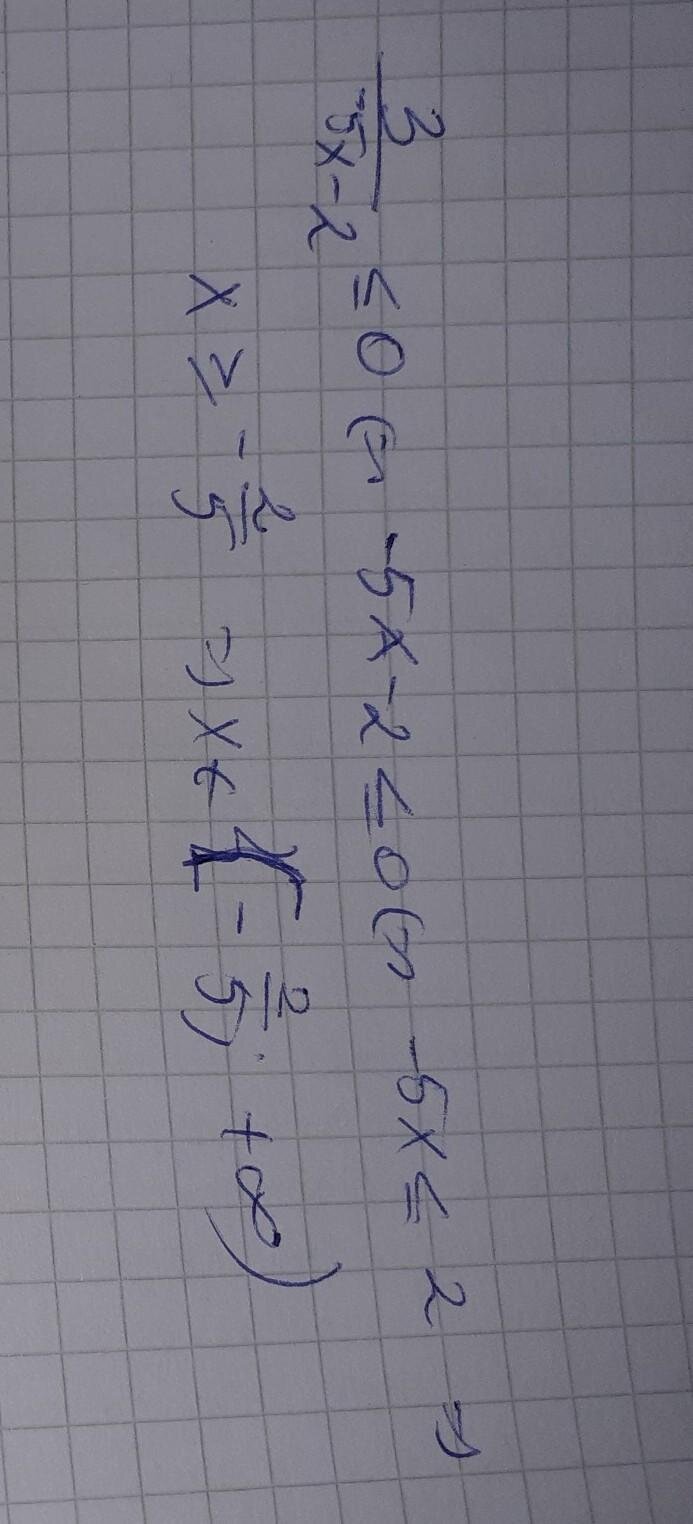 3/(-5x-2) ≤ 0 (=) -5x-2 ≤ 0 (=) -5x ≤ 2 =)
x ≥ -2/5 =) x ∈ [-2/5; +∞)